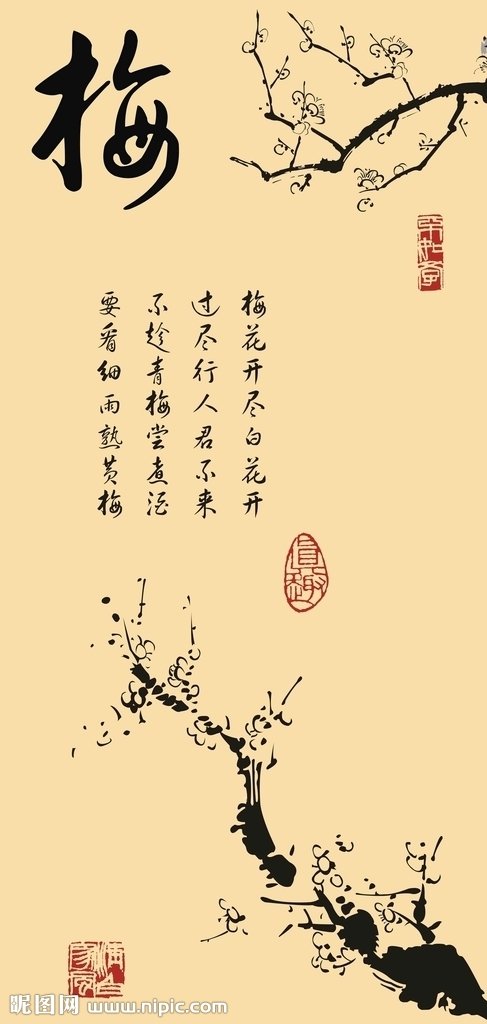 梅
梅花开尽白花开
过尽行人君不来
不趁青梅尝煮酒
要看细雨熟黄梅
真趣
清白
家风
昵图网 www.nipic.com